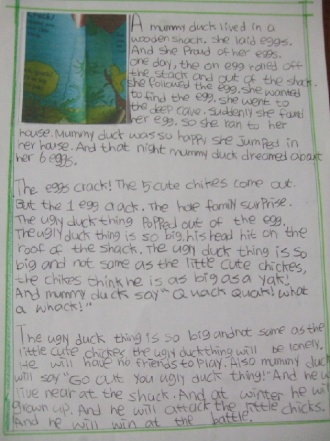 A mummy duck lived in a
wooden shack. she laid eggs.
And she Proud of her eggs.
one day, the on egg rolled off
the stack and out of the shack.
she followed the egg. she wanted
to find the egg. she went to
the deep cave. Suddenly she found
her egg. So she ran to her
house. Mummy duck was so happy she Jumped in
her house. And that night mummy duck dreamed about
her 6 eggs.
The eggs crack! The 5 cute chikes come out.
But the 1 egg crack. The hole family surprise.
The ugly duck thing Popped out of the egg.
The ugly duck thing is so big, his head hit on the
roof of the shack. The ugly duck thing is so
big and not same as the little cute chickes,
the chikes think he is as big as a yak!
And mummy duck say "Quack Quak! what
a whack!"
The ugly duck thing is so big and not same as the
little cute chickes the ugly duck thing will be lonely.
will have no friends to Play. Also mummy duck
will say "Go out you ugly duck thing!" And he w
live near at the shack. And at winter he wi
grown up. And he will attack the little chicks.
And he will win at the battle.